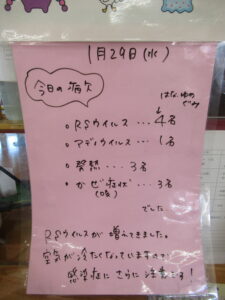 1月29日(水)
今日の病欠
はな、ゆめ
ぐみ
・RSウイルス…4名
・アデノウイルス…1名
・発熱…3名
・かぜ症状…3名
(咳)
でした
RSウイルスが増えてきました。
空気が冷たくなっていますので
感染症にさらに注意です!